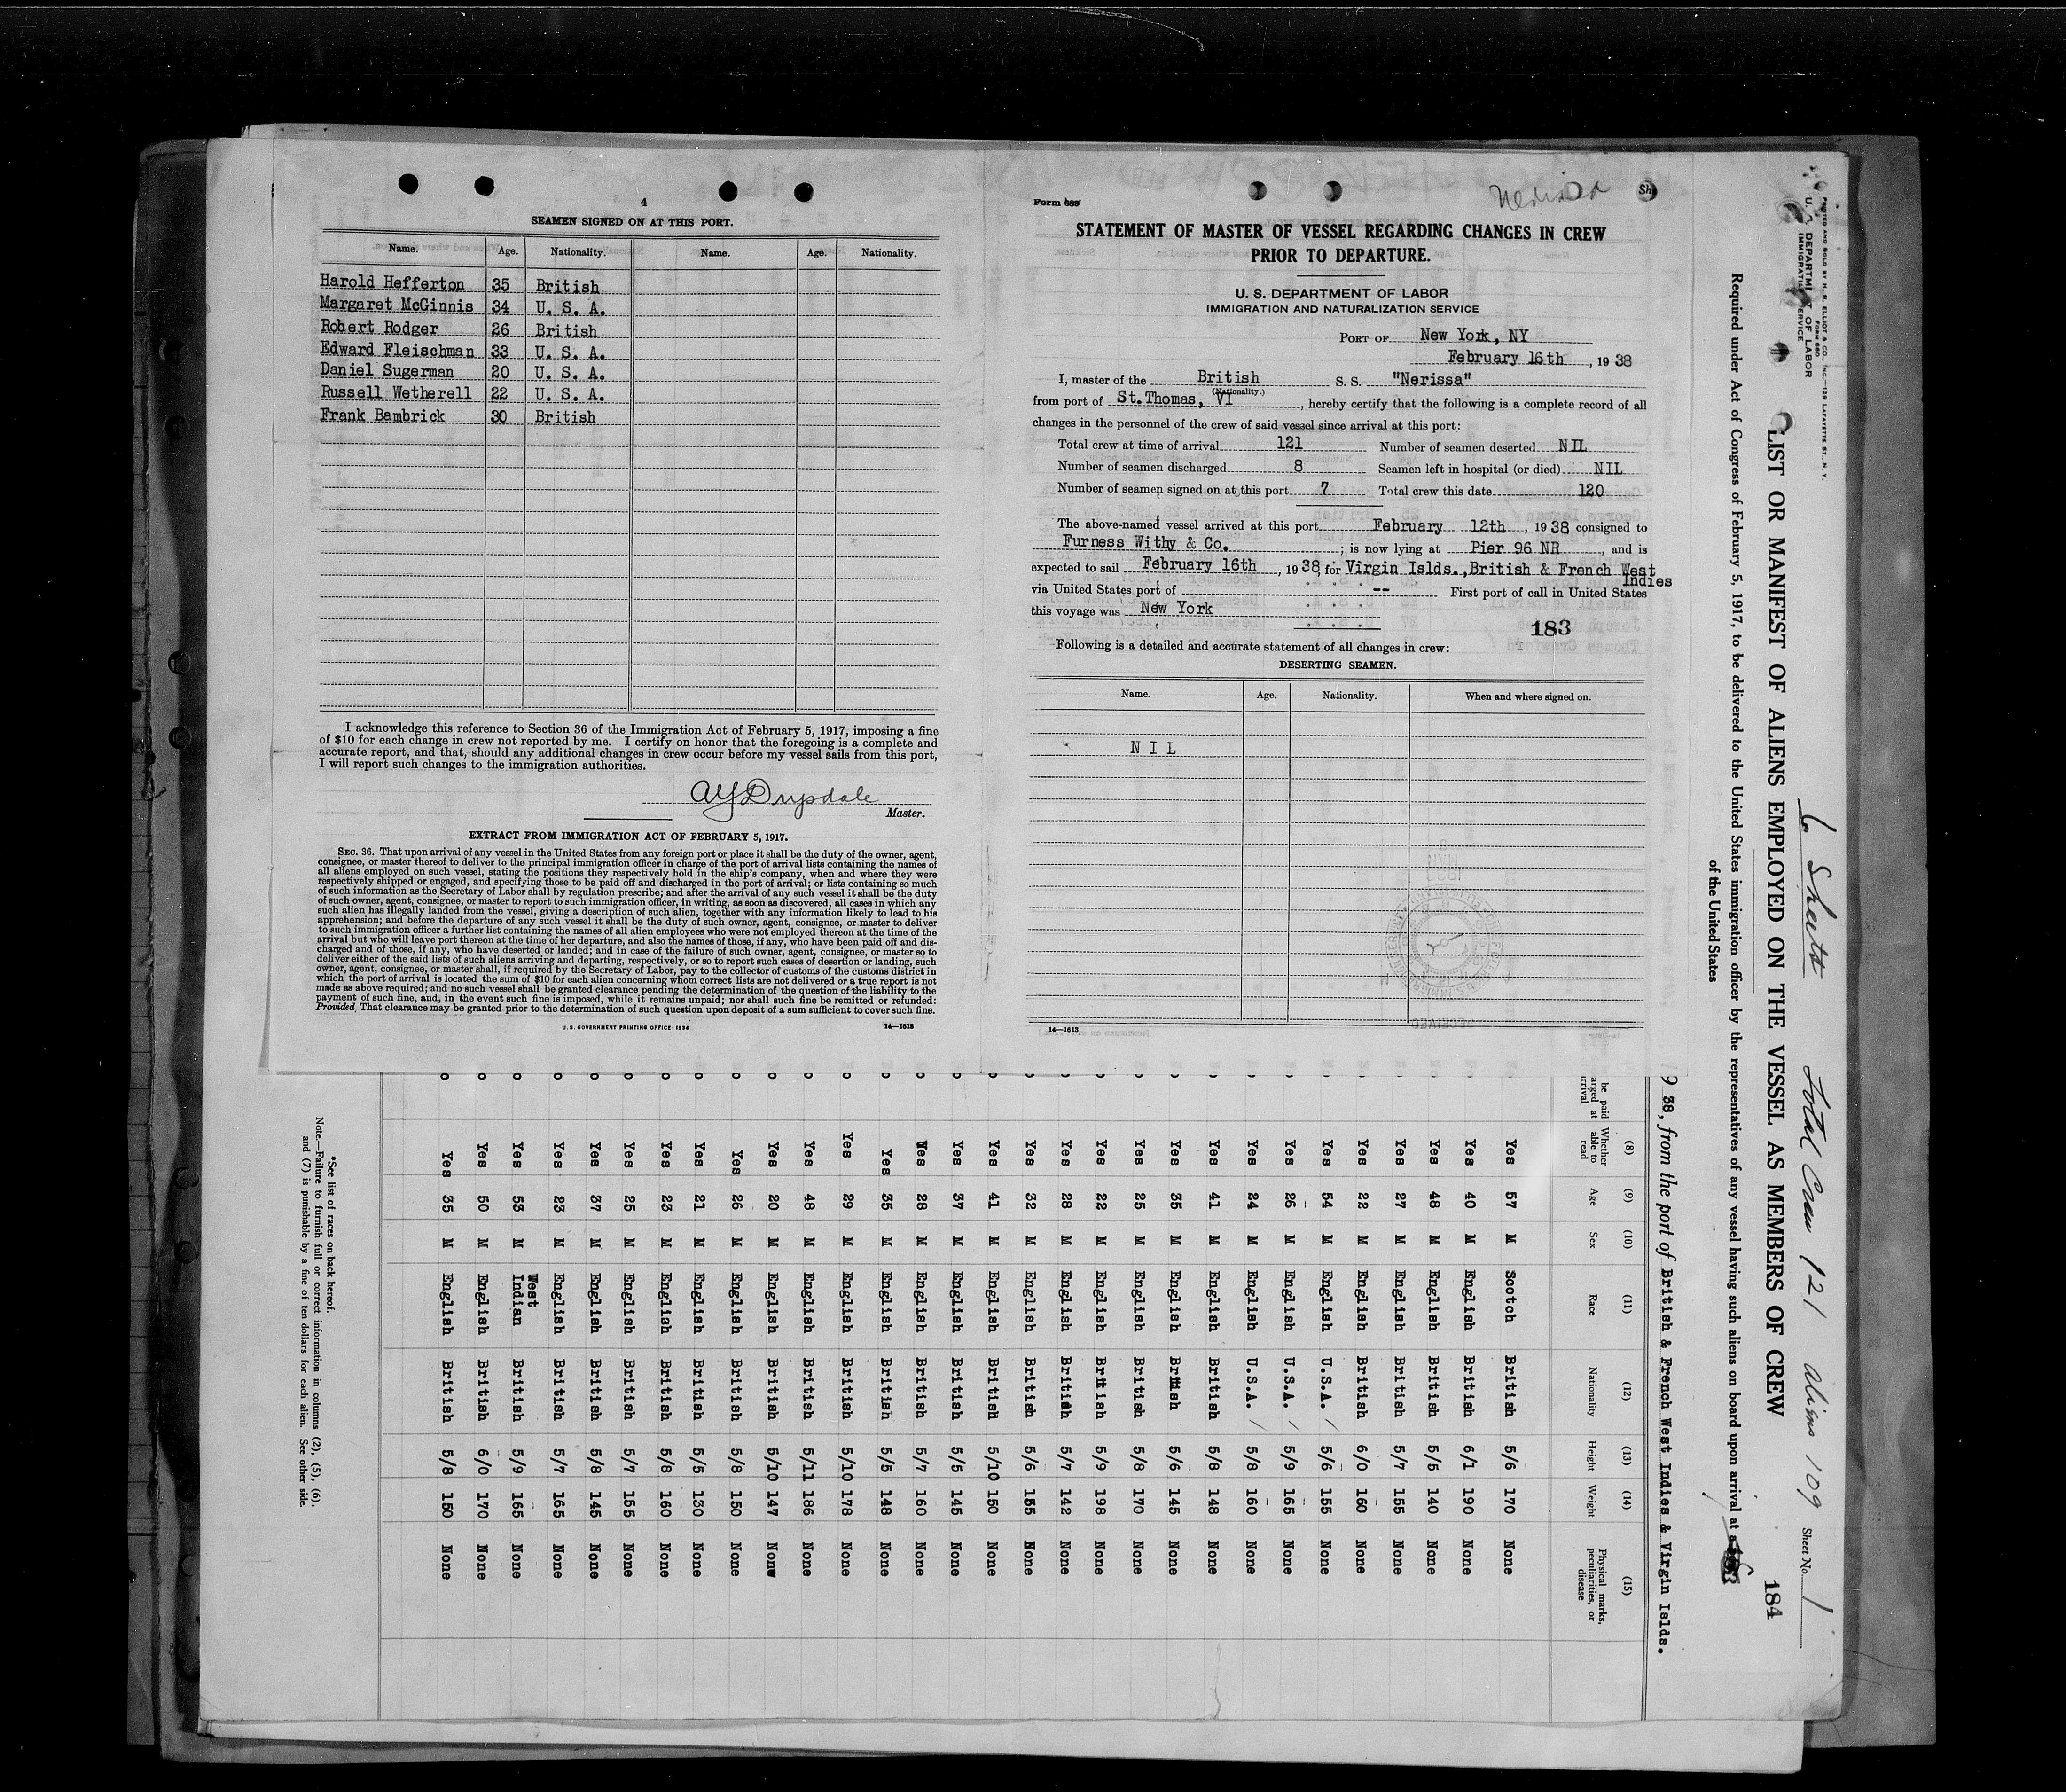 4
SEAMEN SIGNED ON AT THIS PORT.
Name. Age. Nationality. Name. Age. Nationality.
Harold Hefferton 35 British
Margaret McGinnis 34 U. S. A.
Robert Rodger 26 British
Edward Fleischman 33 U. S. A.
Daniel Sugerman 20 U. S. A.
Russell Wetherell 22 U. S. A.
Frank Bambrick 30 British
I acknowledge this reference to Section 36 of the Immigration Act of February 5, 1917, imposing a fine
of $10 for each change in crew not reported by me. I certify on honor that the foregoing is a complete and
accurate report, and that, should any additional changes in crew occur before my vessel sails from this port,
I will report such changes to the immigration authorities.
AYDrysdale
Master.
EXTRACT FROM IMMIGRATION ACT OF FEBRUARY 5, 1917.
SEC. 36. That upon arrival of any vessel in the United States from any foreign port or place it shall be the duty of the owner, agent,
consignee, or master thereof to deliver to the principal immigration officer in charge of the port of arrival lists containing the names of
all aliens employed on such vessel, stating the positions they respectively hold in the ship's company, when and where they were
respectively shipped or engaged, and specifying those to be paid off and discharged in the port of arrival; or lists containing so much
of such information as the Secretary of Labor shall by regulation prescribe; and after the arrival of any such vessel it shall be the duty
of such owner, agent, consignee, or master to report to such immigration officer, in writing, as soon as discovered, all cases in which any
such alien has illegally landed from the vessel, giving a description of such alien, together with any information likely to lead to his
apprehension; and before the departure of any such vessel it shall be the duty of such owner, agent, consignee, or master to deliver
to such immigration officer a further list containing the names of all alien employees who were not employed thereon at the time of the
arrival but who will leave port thereon at the time of her departure, and also the names of those, if any, who have been paid off and dis-
charged and of those, if any, who have deserted or landed; and in case of the failure of such owner, agent, consignee, or master so to
deliver either of the said lists of such aliens arriving and departing, respectively, or so to report such cases of desertion or landing, such
owner, agent, consignee, or master shall, if required by the Secretary of Labor, pay to the collector of customs of the customs district in
which the port of arrival is located the sum of $10 for each alien concerning whom correct lists are not delivered or a true report is not
made as above required; and no such vessel shall be granted clearance pending the determination of the question of the liability to the
payment of such fine, and, in the event such fine is imposed, while it remains unpaid; nor shall such fine be remitted or refunded:
Provided, That clearance may be granted prior to the determination of such question upon deposit of a sum sufficient to cover such fine.
U. S. GOVERNMENT PRINTING OFFICE: 1934 14—1613
Form 689
Nerissa
Sh
STATEMENT OF MASTER OF VESSEL REGARDING CHANGES IN CREW
PRIOR TO DEPARTURE.
U. S. DEPARTMENT OF LABOR
IMMIGRATION AND NATURALIZATION SERVICE
PORT OF New York, NY
February 16th, 1938
I, master of the British S. S. "Nerissa"
(Nationality.)
from port of St.Thomas, VI, hereby certify that the following is a complete record of all
changes in the personnel of the crew of said vessel since arrival at this port:
Total crew at time of arrival 121 Number of seamen deserted NIL
Number of seamen discharged 8 Seamen left in hospital (or died) NIL
Number of seamen signed on at this port 7 Total crew this date 120
The above-named vessel arrived at this port February 12th, 1938 consigned to
Furness Withy & Co.; is now lying at Pier 96 NR, and is
expected to sail February 16th, 1938, for Virgin Islds.,British & French West
Indies
via United States port of -- First port of call in United States
this voyage was New York
183
Following is a detailed and accurate statement of all changes in crew:
DESERTING SEAMEN.
Name. Age. Nationality. When and where signed on.
N I L
14—1613
PRINTED AND SOLD BY H. R. ELLIOT & CO., INC.—129 LAFAYETTE ST., N. Y.
Form 680
U. S. DEPARTMENT OF LABOR
IMMIGRATION SERVICE
6 Sheets Total Crew 121 aliens 109 Sheet No. 1
LIST OR MANIFEST OF ALIENS EMPLOYED ON THE VESSEL AS MEMBERS OF CREW 184
Required under Act of Congress of February 5, 1917, to be delivered to the United States immigration officer by the representatives of any vessel having such aliens on board upon arrival at
of the United States
38, from the port of British & French West Indies & Virgin Islds.
(8) (9) (10) (11) (12) (13) (14) (15)
be paid
arged at
rrival
Whether able to read Age Sex Race Nationality Height Weight Physical marks, peculiarities, or disease
Yes 57 M Scotch British 5/6 170 None
Yes 40 M English British 6/1 190 None
Yes 48 M English British 5/5 140 None
Yes 27 M English British 5/7 155 None
Yes 22 M English British 6/0 160 None
Yes 54 M English U.S.A. 5/6 155 None
Yes 26 M English U.S.A. 5/9 165 None
Yes 24 M English U.S.A. 5/8 160 None
Yes 41 M English British 5/8 148 None
Yes 35 M English British 5/6 145 None
Yes 25 M English British 5/8 170 None
Yes 22 M English British 5/9 198 None
Yes 28 M English British 5/7 142 None
Yes 32 M English British 5/6 155 None
Yes 41 M English British 5/10 150 None
Yes 37 M English British 5/5 145 None
Yes 28 M English British 5/7 160 None
Yes 35 M English British 5/5 148 None
Yes 29 M English British 5/10 178 None
Yes 48 M English British 5/11 186 None
Yes 20 M English British 5/10 147 None
Yes 26 M English British 5/8 150 None
Yes 21 M English British 5/5 130 None
Yes 23 M English British 5/8 160 None
Yes 25 M English British 5/7 155 None
Yes 37 M English British 5/8 145 None
Yes 23 M English British 5/7 165 None
Yes 53 M West Indian British 5/9 165 None
Yes 50 M English British 6/0 170 None
Yes 35 M English British 5/8 150 None
*See list of races on back hereof.
Note.—Failure to furnish full or correct information in columns (2), (5), (6),
and (7) is punishable by a fine of ten dollars for each alien. See other side.